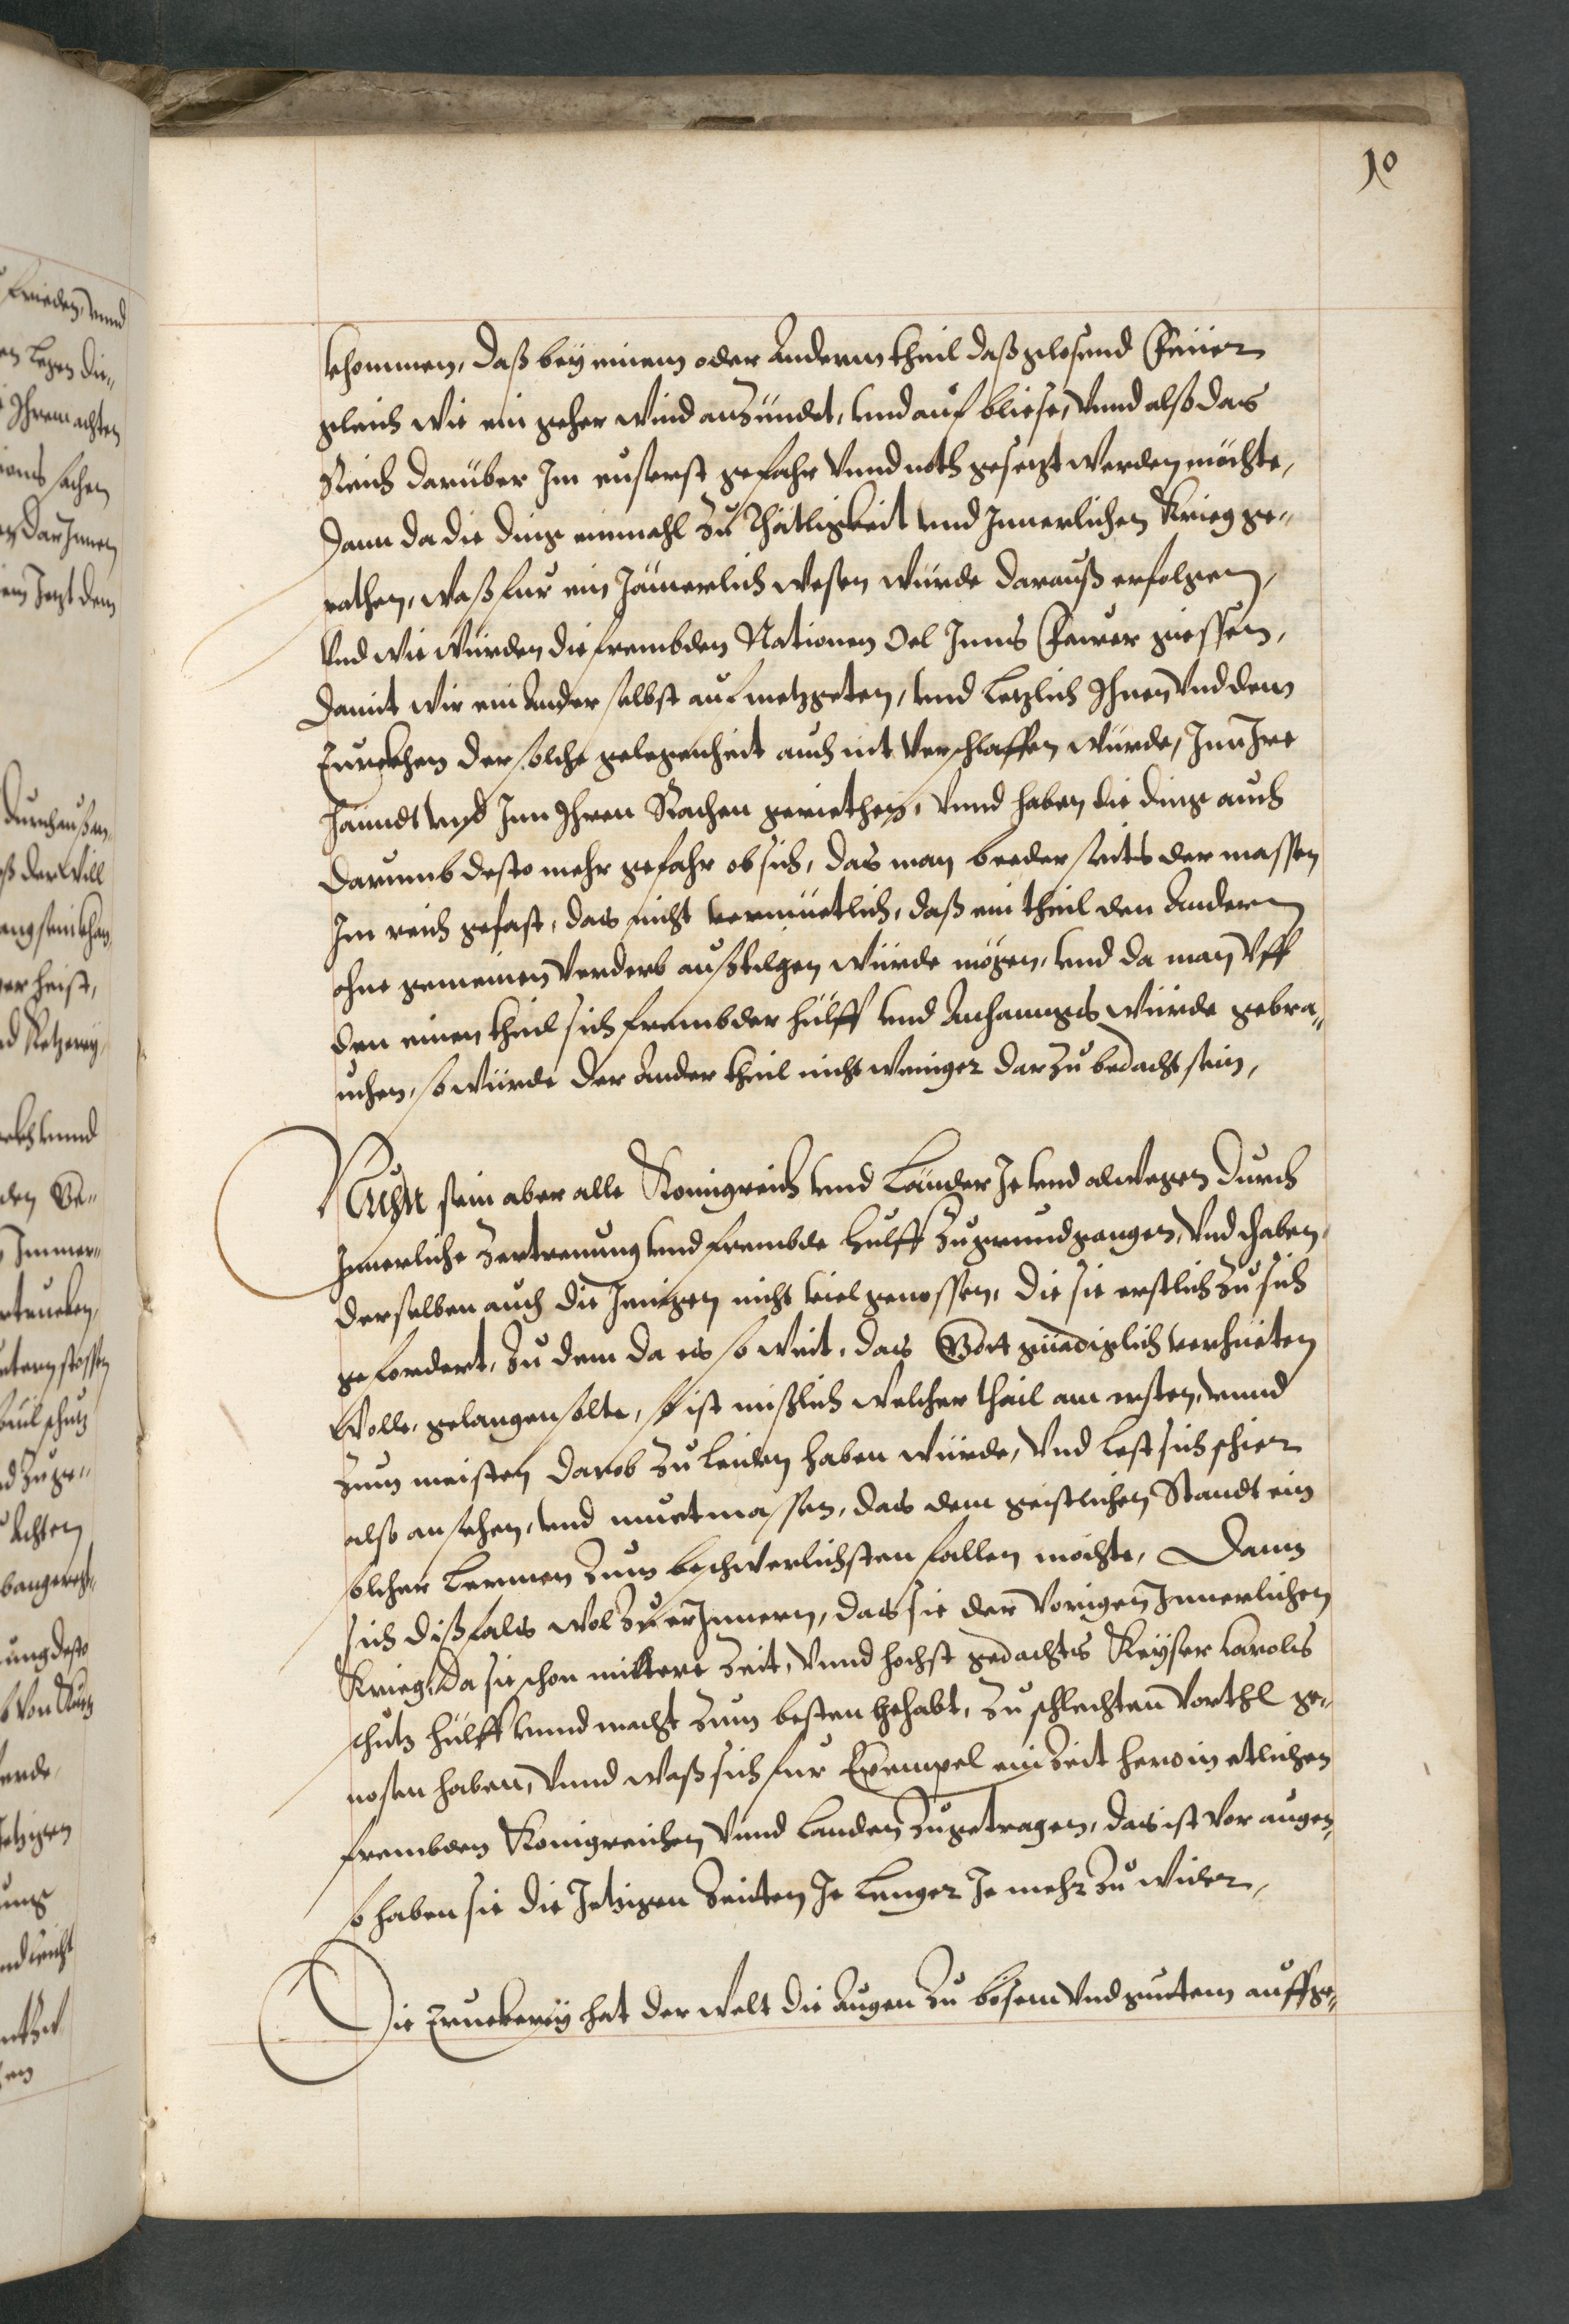 10
khommen, daß bey einem oder Anderm theil daß glosend Feüer
gleich wie ein geher wind anzündet, vnd auf bliese, vnnd alß das
Reich darüber Im eusserst gefahr vnnd noth gesetzt werden möchte,
dann da die ding einmahl zu Thätligkeit vnd Innerlichen Krieg ge„
rathen, waß fur ein Jämerlich wesen würde darauß erfolgen,
vnd wie würden die frembden Nationen Oel Inns Feuer giessen,
damit wir ein Ander selbst auf metzgeten, vnd letzlich Ihnen vnd dem
Turckhen der solche gelegenheit auch nit verschlaffen würde, Inn Ire
hanndt vnd Inn Ihren Rachen geriethen, vnnd haben die ding auch
darumb desto mehr gefahr ob sich, das man beederseits der massen
Im reich gefast, das nicht vermüetlich, daß ein theil den Andern
ohne gemeinen verderb außtilgen würde mögen, vnd da man vff
den einen theil sich frembder hülff vnd Anhanngs würde gebra„
uchen, so würde der Ander theil nicht weniger darzu bedacht sein,
Nuhn sein aber alle Konigreich vnd Länder Je vnd alwegen durch
Innerliche Zertrenung vnd frembde hülff zu grund gangen, vnd haben
derselben auch die Jenigen nicht viel genossen, die sie erstlich zu sich
gefordert, zu dem da es so weit, das Gott gnädiglich verhueten
wolle, gelangen solte, so ist mißlich welcher thail am ersten, vnnd
zum meisten darob zu leiden haben würde, vnd lest sich schier
also ansehen, vnd muetmassen, das dem geistlichen Standt ein
solcher Lermen zum beschwerlichsten fallen mochte, Dann
sich dißfals wol zu erInnern, das sie der vorigen Innerlichen
Krieg, da sie schon mittere Zeit, vnnd hochst gedachts Keyser Carolis
schutz hülff vnnd macht zum besten gehabt, zu schlechten vorthl ge„
nossen haben, vnnd waß sich fur Exempel ein Zeit hero in etlichen
frembden Konigreichen vnnd Landen zugetragen, das ist vor augen,
so haben sie die Jetzigen Zeitten Je lenger Je mehr zu wider,
Die Truckerey hat der welt die Augen zu bösem vnd guetem auffge„